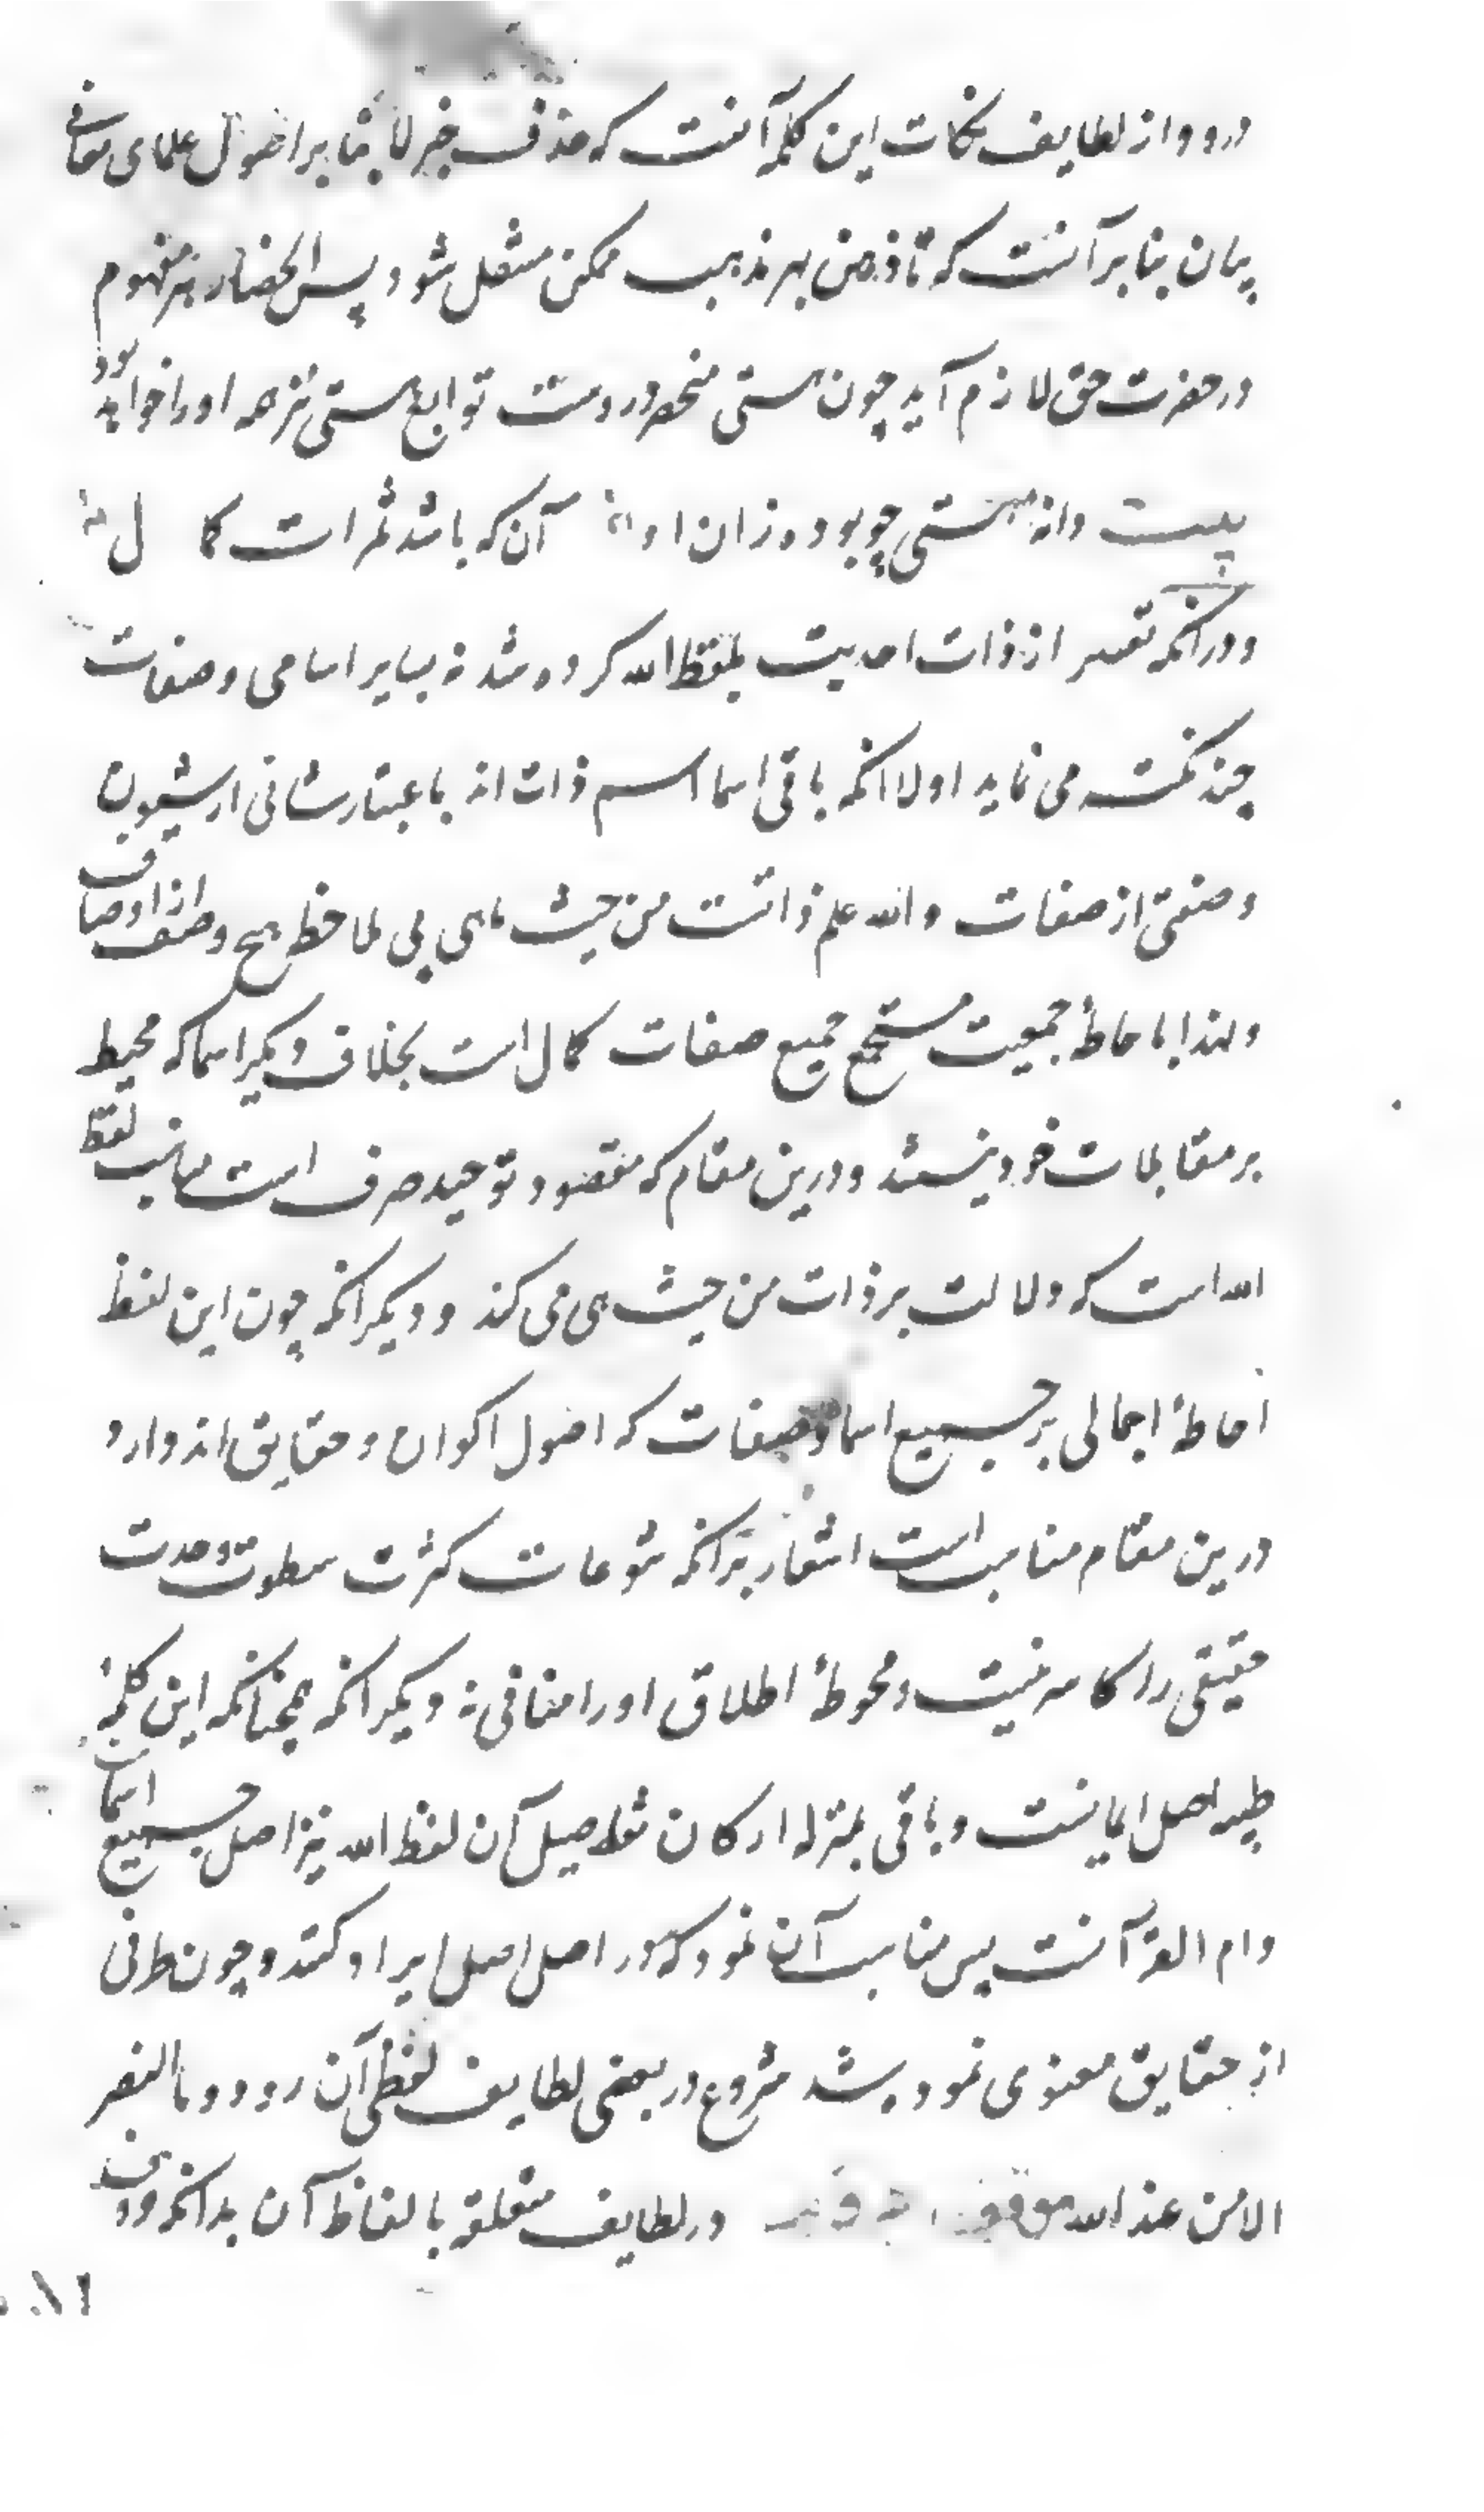 درود و از لطایف نکات این کلمه آنست که حذف خبر لا بنا بر اصول علمای معانی
بیان بنا بر آنست که تا ذهن بهر مذهب ممکن منتقل شود پس انحصار هر مفهوم
در حضرت حق لازم آید چون هستی منحصر دروست توابع هستی نیز همه او را خواهد بود
بیت دانه هستی چو بود زان او آن که باشد ثمرات کمال
و در آنکه تعبیر از ذات احدیت بلفظ الله کرده شد نه بسایر اسامی و صفات
چند نکته می نماید اولا انکه باقی اسما اسم ذات اند باعتبار شانی از شیون
و صفتی از صفات و الله علم ذاتست من حیث هی بی ملاحظه هیچ وصف از اوصاف
و لهذا باحاطهٔ جمعیت مستجمع جمیع صفات کمال است بخلاف دیگر اسما که محیط
بر مقابلات خود نیستند و درین مقام که مقصود توحید صرف است مناسب لفظ
الله است که دلالت بر ذات من حیث هی می کند و دیگر انکه چون این لفظ
احاطهٔ اجمالی بر جمیع اسما و صفات که اصول اکوان و حقایق اند دارد
درین مقام مناسب است اشعار بر آنکه تنوعات کثرت سطوت وحدت
حقیقی را کاسر نیست و محوطهٔ اطلاق او را منافی نه دیگر انکه همچنانکه این کلمهٔ
طیبه اصل ایمانست و باقی بمنزله ارکان تفاصیل آن لفظ الله نیز اصل جمیع اسما
و ام القرآنست پس مناسب آن نمود که در اصل اصل ایراد کنند و چون طرفی
از حقایق معنوی نموده شد شروع در بعضی لطایف لفظی آن رود و ما النصر
الا من عند الله در لطایف متعلقه بالفاظ آن بدانکه درین
۸۱